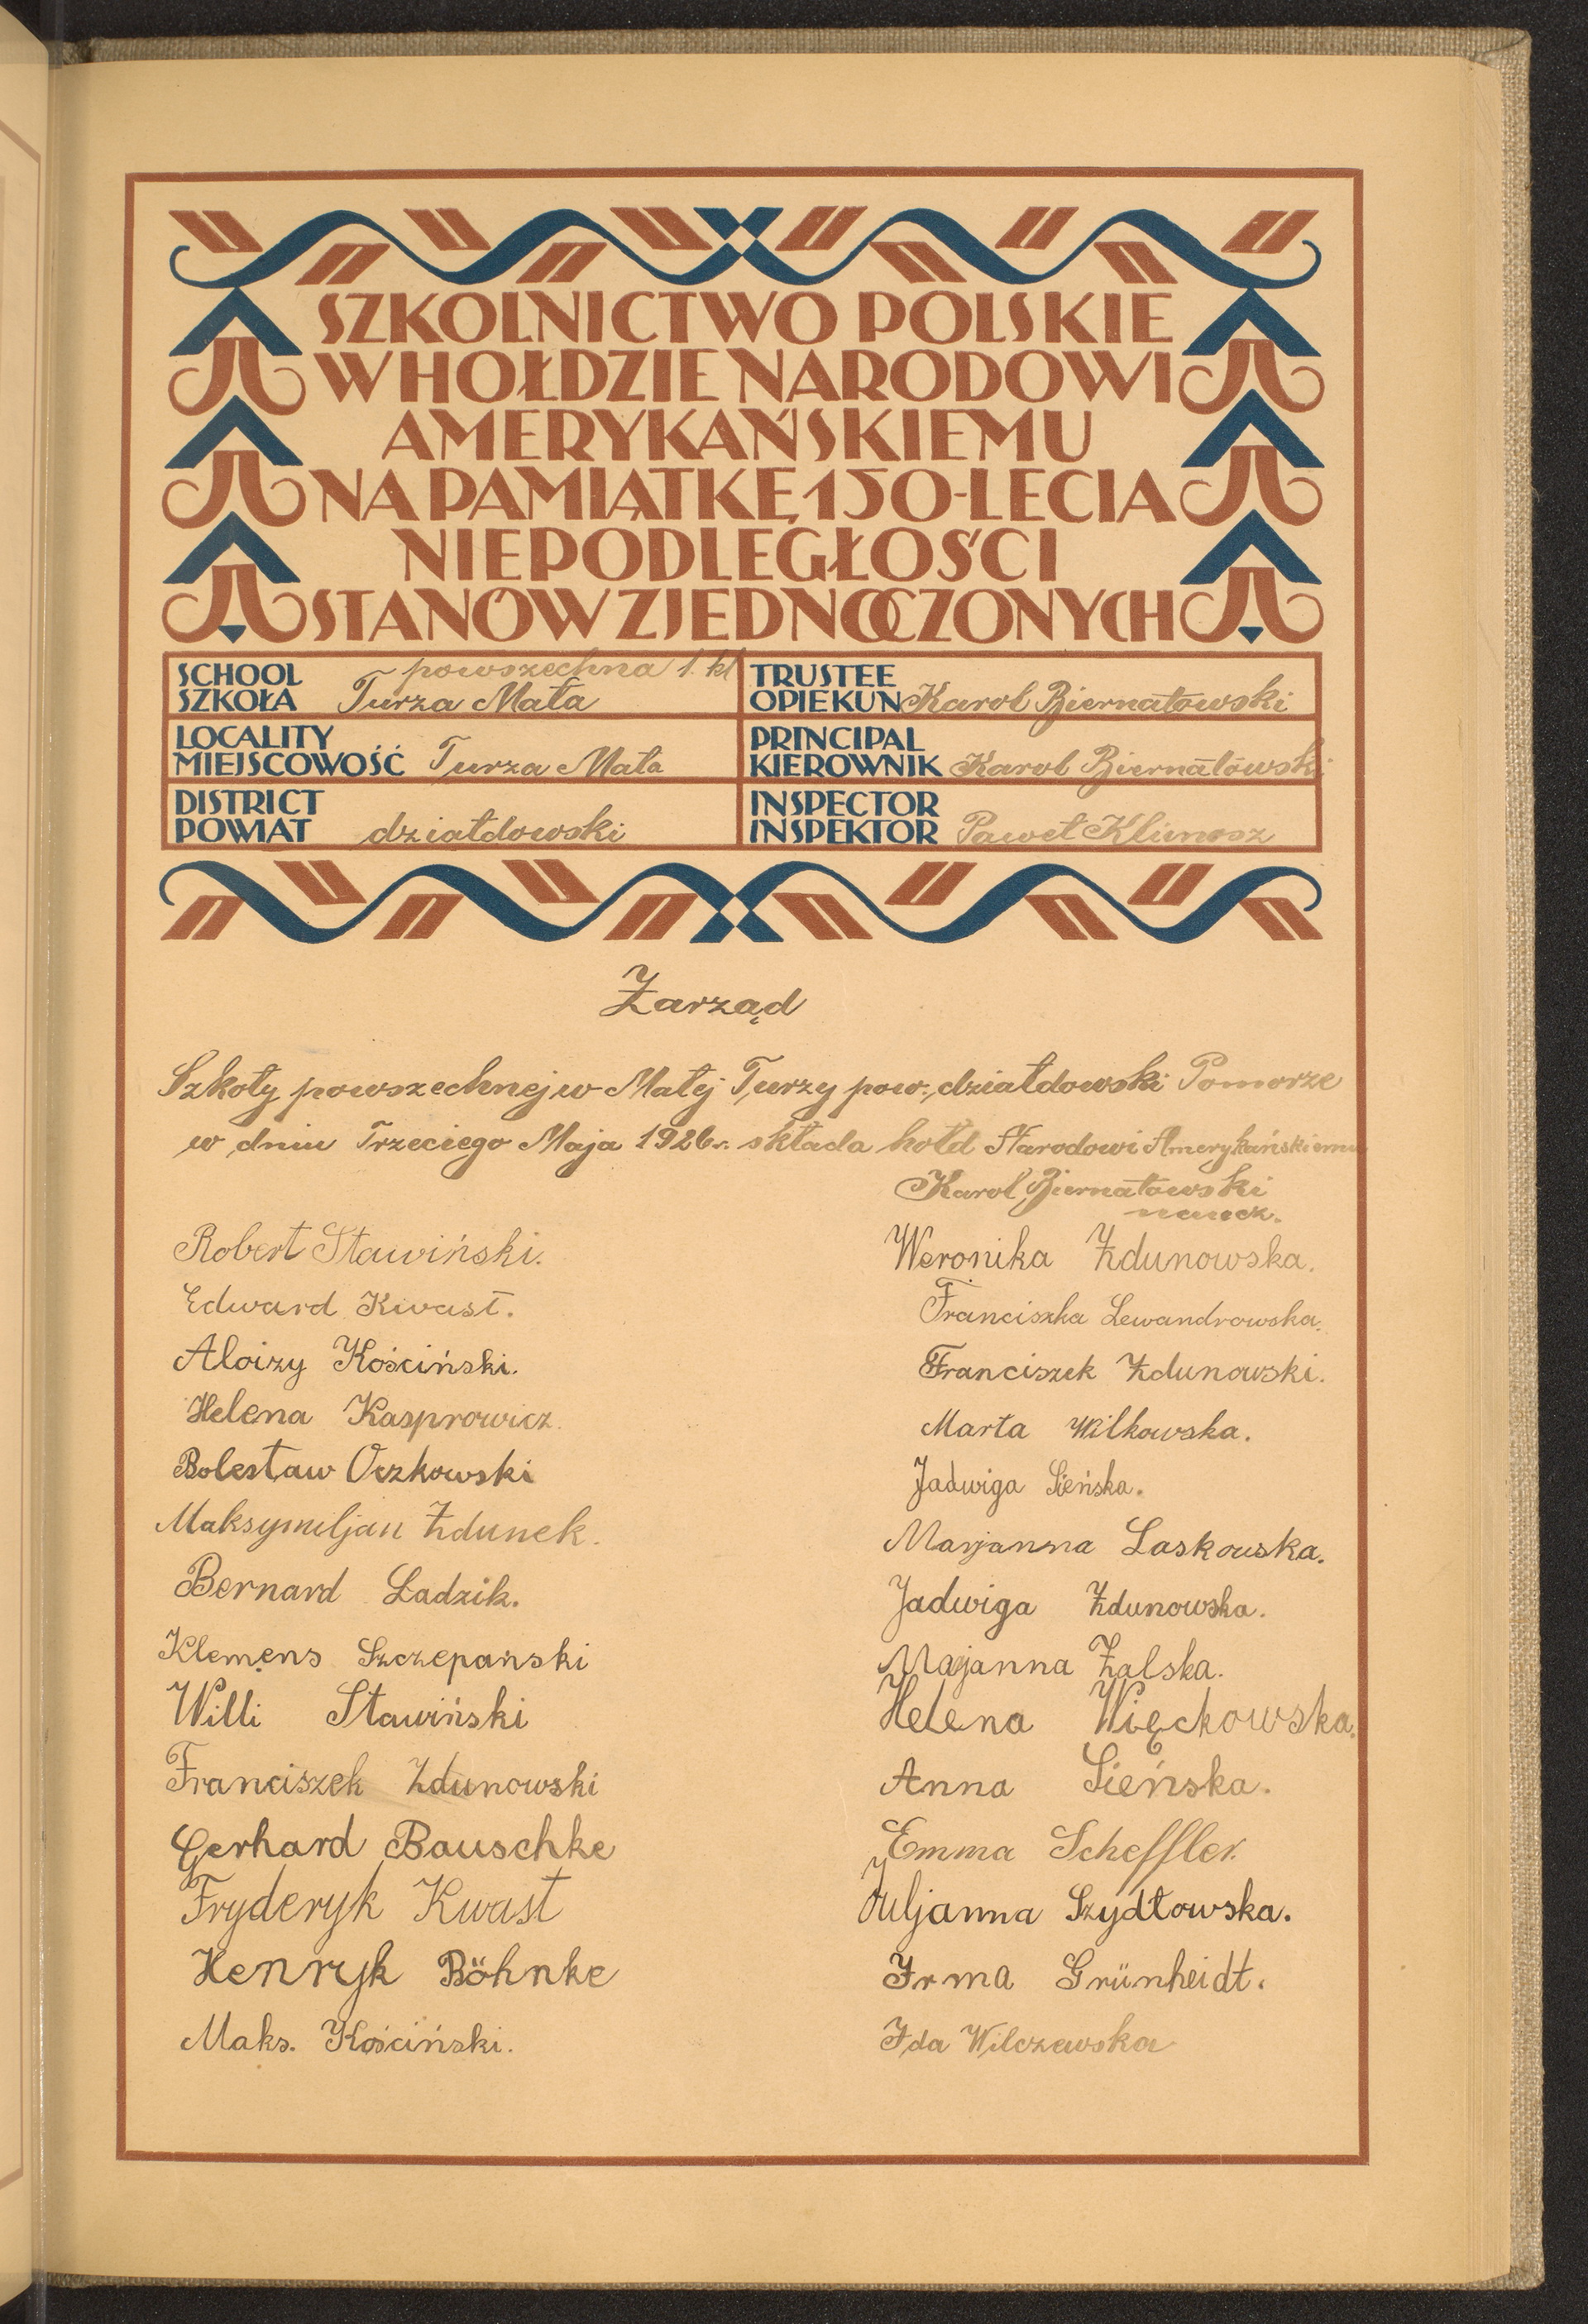 SZKOLNICTWO POLSKIE
W HOŁDZIE NARODOWI
AMERYKAŃSKIEMU
NA PAMIĄTKĘ 150-LECIA
NIEPODLEGŁOŚCI
STANÓW ZJEDNOCZONYCH
SCHOOL
SZKOŁA
powszechna 1. kl
Turza Mała
TRUSTEE
OPIEKUN Karol Biernatowski
LOCALITY
MIEJSCOWOŚĆ Turza Mała
PRINCIPAL
KIEROWNIK Karol Biernatowski
DISTRICT
POWIAT działdowski
INSPECTOR
INSPEKTOR Paweł Klimosz
Zarząd
Szkoły powszechnej w Małej Turzy pow. działdowski Pomorze
w dniu Trzeciego Maja 1926 r. składa hołd Narodowi Amerykańskiemu
Karol Biernatowski
naucz.
Robert Stawiński.
Edward Kwast.
Aloizy Kościński.
Helena Kasprowicz.
Bolesław Oczkowski
Maksymiljan Zdunek.
Bernard Ladzik.
Klemens Szczepański
Willi Stawiński
Franciszek Zdunowski
Gerhard Bauschke
Fryderyk Kwast
Henryk Böhnke
Maks. Kościński.
Weronika Zdunowska.
Franciszka Lewandrowska.
Franciszek Zdunowski.
Marta Wilkowska.
Jadwiga Sieńska.
Marjanna Laskowska.
Jadwiga Zdunowska.
Marjanna Zalska.
Helena Więckowska.
Anna Sieńska.
Emma Scheffler.
Juljanna Szydłowska.
Irma Grünheidt.
Ida Wilczewska